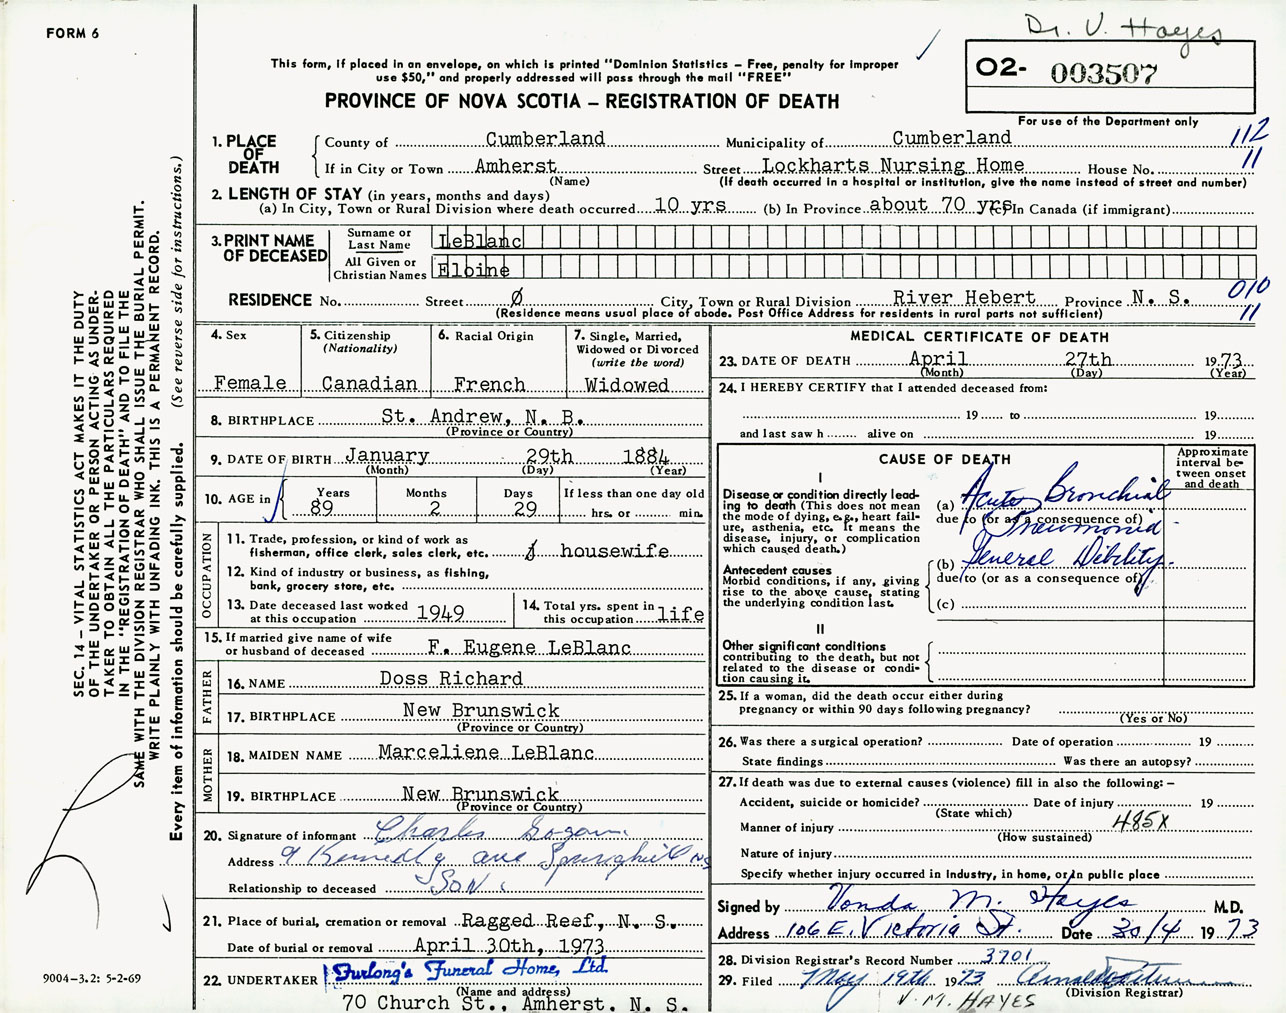 FORM 6
Dr. V. Hayes
This form, if placed in an envelope, on which is printed "Dominion Statistics – Free, penalty for improper
use $50," and properly addressed will pass through the mail "FREE"
PROVINCE OF NOVA SCOTIA – REGISTRATION OF DEATH
O2- 003507
For use of the Department only
SEC. 14 – VITAL STATISTICS ACT MAKES IT THE DUTY
OF THE UNDERTAKER OR PERSON ACTING AS UNDER-
TAKER TO OBTAIN ALL THE PARTICULARS REQUIRED
IN THE "REGISTRATION OF DEATH" AND TO FILE THE
SAME WITH THE DIVISION REGISTRAR WHO SHALL ISSUE THE BURIAL PERMIT.
WRITE PLAINLY WITH UNFADING INK. THIS IS A PERMANENT RECORD.
Every item of information should be carefully supplied. (See reverse side for instructions.)
1. PLACE OF DEATH
County of Cumberland Municipality of Cumberland 112
If in City or Town Amherst Street Lockharts Nursing Home House No. 11
(Name) (If death occurred in a hospital or institution, give the name instead of street and number)
2. LENGTH OF STAY (in years, months and days)
(a) In City, Town or Rural Division where death occurred 10 yrs (b) In Province about 70 yrs (c) In Canada (if immigrant)
3. PRINT NAME OF DECEASED
Surname or Last Name LeBlanc
All Given or Christian Names Elbine
RESIDENCE No. Street Ø City, Town or Rural Division River Hebert Province N. S. 010
(Residence means usual place of abode. Post Office Address for residents in rural parts not sufficient) 11
4. Sex Female
5. Citizenship (Nationality) Canadian
6. Racial Origin French
7. Single, Married, Widowed or Divorced (write the word) Widowed
8. BIRTHPLACE St. Andrew, N. B.
(Province or Country)
9. DATE OF BIRTH January 29th 1884
(Month) (Day) (Year)
10. AGE in Years 89 Months 2 Days 29 If less than one day old hrs. or min.
OCCUPATION
11. Trade, profession, or kind of work as
fisherman, office clerk, sales clerk, etc. housewife
12. Kind of industry or business, as fishing,
bank, grocery store, etc.
13. Date deceased last worked at this occupation 1949
14. Total yrs. spent in this occupation life
15. If married give name of wife
or husband of deceased F. Eugene LeBlanc
FATHER
16. NAME Doss Richard
17. BIRTHPLACE New Brunswick
(Province or Country)
MOTHER
18. MAIDEN NAME Marceliene LeBlanc
19. BIRTHPLACE New Brunswick
(Province or Country)
20. Signature of informant Charles
Address 9 Kennedy ave Springhill NS
Relationship to deceased Son
21. Place of burial, cremation or removal Ragged Reef, N. S.
Date of burial or removal April 30th, 1973
22. UNDERTAKER Furlong's Funeral Home, Ltd.
(Name and address)
70 Church St., Amherst, N. S.
9004–3.2: 5-2-69
MEDICAL CERTIFICATE OF DEATH
23. DATE OF DEATH April 27th 1973
(Month) (Day) (Year)
24. I HEREBY CERTIFY that I attended deceased from:
19 to 19
and last saw h alive on 19
CAUSE OF DEATH
Approximate interval between onset and death
I
Disease or condition directly lead-
ing to death (This does not mean
the mode of dying, e.g., heart fail-
ure, asthenia, etc. It means the
disease, injury, or complication
which caused death.)
(a) Acute Bronchial
due to (or as a consequence of)
Pneumonia
Antecedent causes
Morbid conditions, if any, giving
rise to the above cause, stating
the underlying condition last.
(b) General Debility
due to (or as a consequence of)
(c)
II
Other significant conditions
contributing to the death, but not
related to the disease or condi-
tion causing it.
25. If a woman, did the death occur either during
pregnancy or within 90 days following pregnancy?
(Yes or No)
26. Was there a surgical operation? Date of operation 19
State findings Was there an autopsy?
27. If death was due to external causes (violence) fill in also the following: –
Accident, suicide or homicide? Date of injury 19
(State which)
Manner of injury 485X
(How sustained)
Nature of injury
Specify whether injury occurred in industry, in home, or in public place
Signed by Vonda M. Hayes M.D.
Address 106 E. Victoria St. Date 30/4 1973
28. Division Registrar's Record Number 3701
29. Filed May 19th 1973
(Division Registrar)
V. M. HAYES